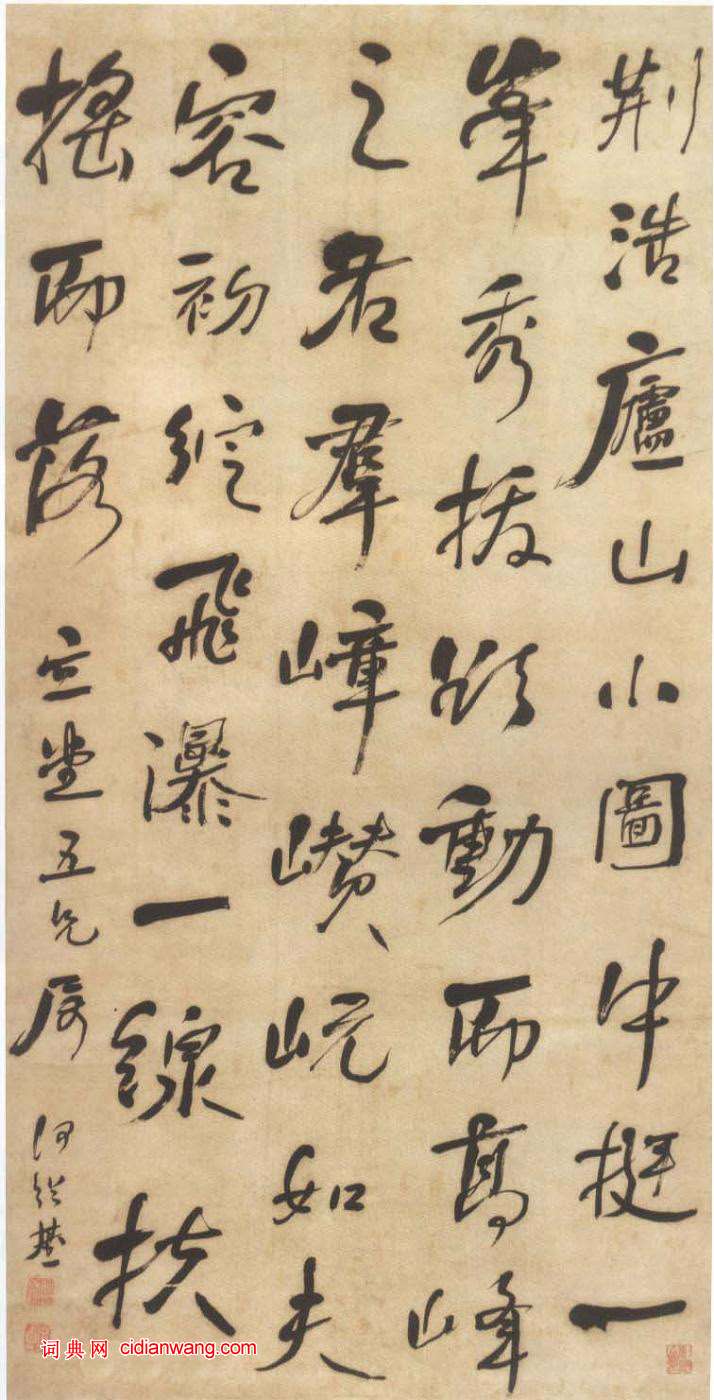 荆浩廬山小圖中挺一
峯秀拔欲動而高峰
之右羣嶂巑岏如夫
容初綻飛瀑一線扶
搖而落
堂五兄屬
何紹基
词典网 cidianwang.com